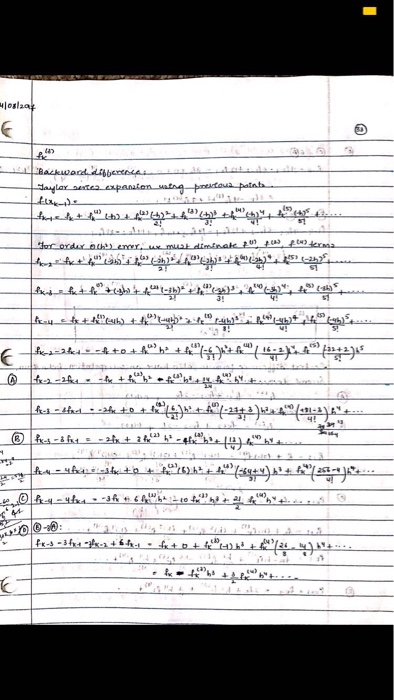 4/08/20
(33)
fk^(3)
Backward difference:
Taylor series expansion using previous points.
f(xk-1) =
fk-1 = fk + fk^(1) (-h) + fk^(2) (-h)^2/2! + fk^(3) (-h)^3/3! + fk^(4) (-h)^4/4! + fk^(5) (-h)^5/5! + ....
For order O(h²) error, we must eliminate f^(1), f^(2), f^(4) terms
fk-2 = fk + fk^(1) (-2h) + fk^(2) (-2h)^2/2! + fk^(3) (-2h)^3/3! + fk^(4) (-2h)^4/4! + fk^(5) (-2h)^5/5!
fk-3 = fk + fk^(1) (-3h) + fk^(2) (-3h)^2/2! + fk^(3) (-3h)^3/3! + fk^(4) (-3h)^4/4! + fk^(5) (-3h)^5/5! + ....
fk-4 = fk + fk^(1) (-4h) + fk^(2) (-4h)^2/2! + fk^(3) (-4h)^3/3! + fk^(4) (-4h)^4/4! + fk^(5) (-4h)^5/5! + ....
fk-2 - 2fk-1 = -fk + 0 + fk^(2) h^2 + fk^(3) (-6/3!) h^3 + fk^(4) (16-2/4!) h^4 + fk^(5) (-32+2/5!) h^5
(A) fk-2 - 2fk-1 = -fk + fk^(2) h^2 - fk^(3) h^3 + 14/24 fk^(4) h^4 + ....
fk-3 - 3fk-1 = -2fk + 0 + fk^(2) (6/2!) h^2 + fk^(3) (-27+3/3!) h^3 + fk^(4) (+81-3/4!) h^4 + ....
(B) fk-3 - 3fk-1 = -2fk + 3fk^(2) h^2 - 4fk^(3) h^3 + (13/4) fk^(4) h^4 + ....
fk-4 - 4fk-1 = -3fk + 0 + fk^(2) (6) h^2 + fk^(3) (-64+4/3!) h^3 + fk^(4) (256-4/4!) h^4 + ....
(C) fk-4 - 4fk-1 = -3fk + 6fk^(2) h^2 - 10 fk^(3) h^3 + 21/2 fk^(4) h^4 + ....
(D) (B)-3(A):
fk-3 - 3fk-1 - 3fk-2 + 6fk-1 = fk + 0 + fk^(3) (-1) h^3 + fk^(4) (26/8 - 14/8) h^4 + ....
= fk - fk^(3) h^3 + 3/2 fk^(4) h^4 + ....